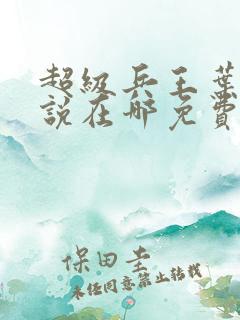 超级兵王葉
说在哪免费
保田圭
未经同意禁止转载